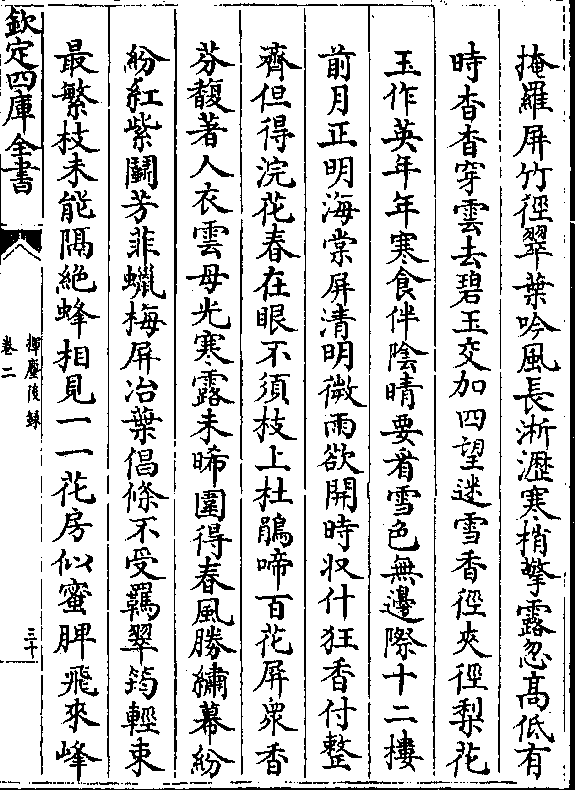 掩羅屏竹徑翠葉吟風長淅瀝寒梢擎露忽高低有
時杳杳穿雲去碧玉交加四望迷雪香徑夾徑梨花
玉作英年年寒食伴陰晴要看雪色無邊際十二樓
前月正明海棠屏清明微雨欲開時収什狂香付整
齊但得浣花春在眼不須枝上杜鵑啼百花屏衆香
芬馥著人衣雲母光寒露未晞圍得春風勝繡幕紛
紛紅紫鬭芳菲蠟梅屏冶葉倡條不受羈翠筠輕束
最繁枝未能隔絶蜂相見一一花房似蜜脾飛來峰
欽定四庫全書
揮麈後録
卷二
三十